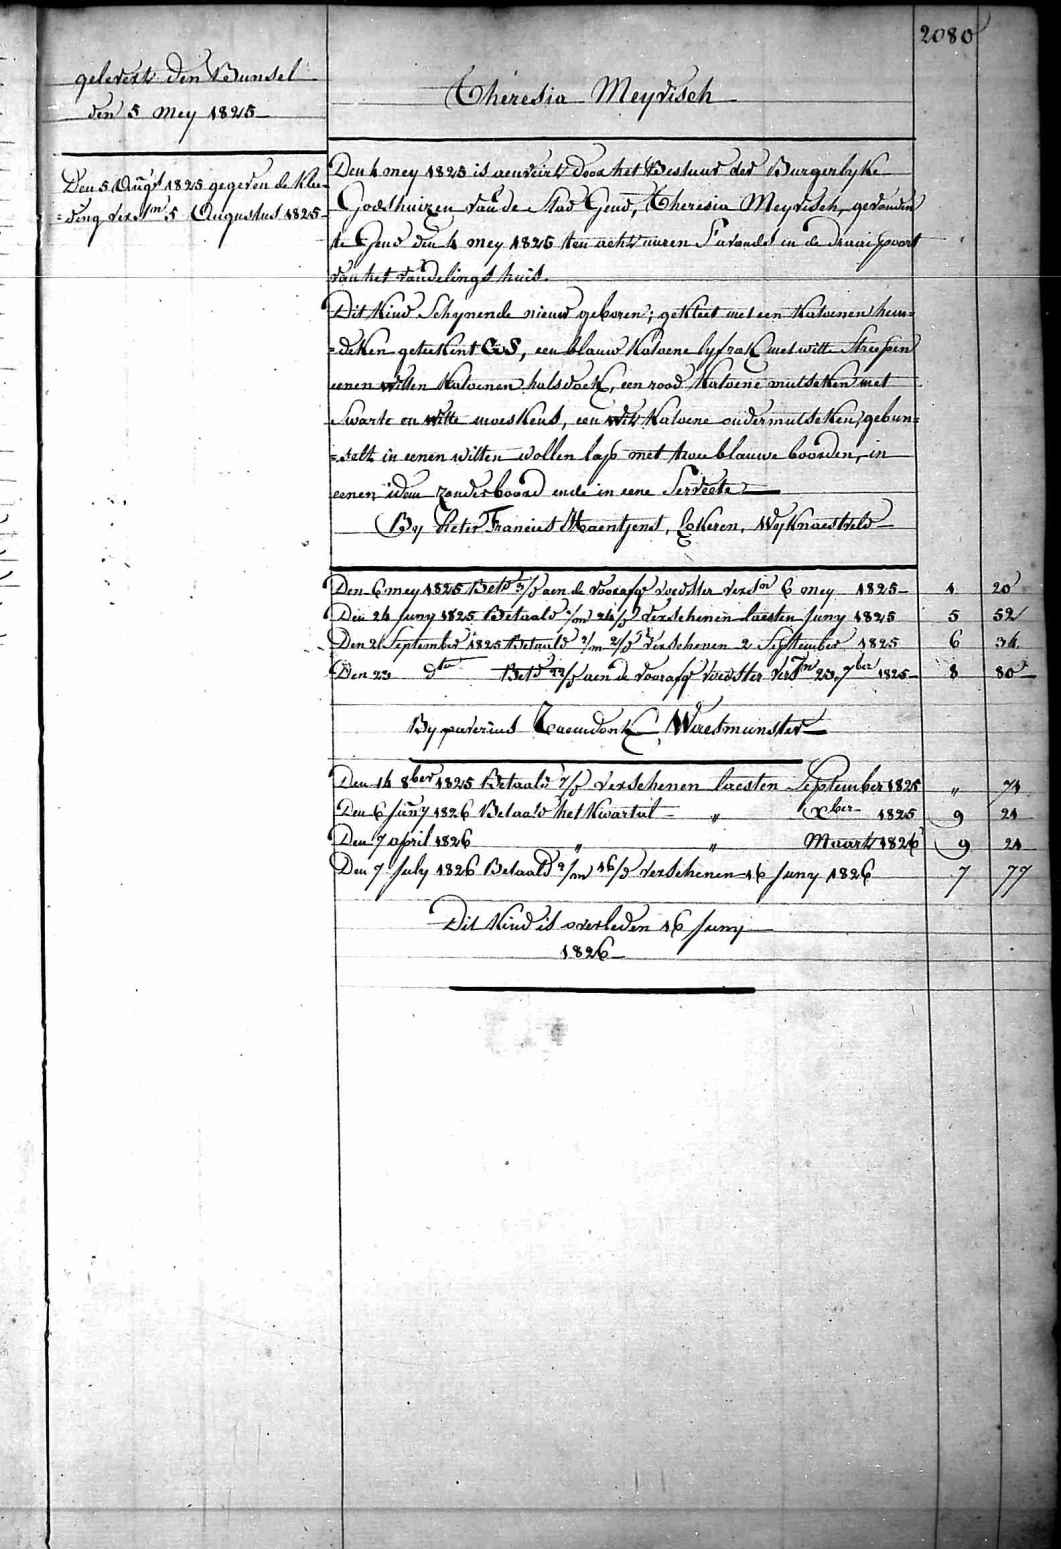 2080
gelevert den Bunsel
den 5 Mey 1825
Theresia Meyvisch
Den 5 Aug.t 1825 gegeven de Klee-
=ding vers.en 5 Augustus 1825
Den 4 mey 1825 is aenveirt door het Bestuur der Burgerlyke
Godshuizen van de Stad Gend, Theresia Meyvisch, gevonden
te Gend den 4 mey 1825 ten acht uuren S'avonds in de draai poort
van het vondelings huis.
Dit Kind Schynende nieuw geboren; gekleet met een Katoenen hem-
=deken geteekent GS, een blauw Katoene lyfrok met witte Streepen
eenen witten Katoenen halsdoek, een rood Katoene mutseken met
Swarte en witte moeskens, een wit Katoene ondermutseken, gebun-
=selt in eenen witten wollen lap met twee blauwe boorden, in
eenen idem zonder boord ende in eene Serviete
By Pieter Francies Maentjens, Lokeren, Wyknaestveld
Den 6 mey 1825 Bet.d 3/d aen de voorafg voedster vers.en 6 mey 1825 1 20
Den 24 Juny 1825 Betaald 1/m 24/d verschenen laesten Juny 1825 5 52
Den 2 September 1825 Betaald 2/m 2/d verschenen 2 September 1825 6 34
Den 23 d.to Bet.d 22/d aen de voorafg voedster vers.en 23 7ber 1825 8 80
By Waesmunster
Den 14 8ber 1825 Betaald 7/d verschenen laesten September 1825 " 74
Den 6 January 1826 Betaald het Kwartael " Xber 1825 9 21
Den 7 april 1826 " " Maart 1826 9 21
Den 7 July 1826 Betaald 2/m 16/d verschenen 16 Juny 1826 7 77
Dit Kind is overleden 16 Juny
1826